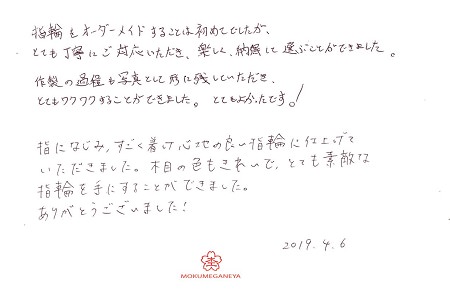 指輪をオーダーメイドすることは初めてでしたが、
とても丁寧にご対応いただき、楽しく、納得して選ぶことができました。
作製の過程も写真として形に残していただき、
とてもワクワクすることができました。とてもよかったです!
指になじみ、すごく着け心地の良い指輪に仕上げて
いただきました。木目の色もきれいで、とても素敵な
指輪を手にすることができました。
ありがとうございました!
2019.4.6
MOKUMEGANEYA